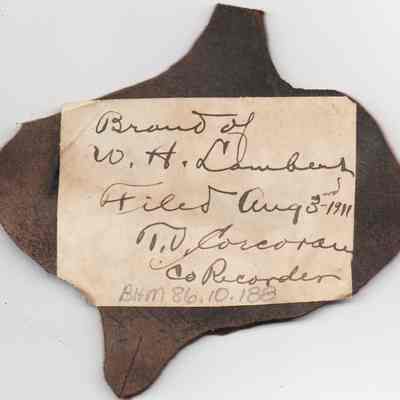 Brand of
W. H. Lambert
Filed Aug 3rd 1911
T. J. Corcoran
Co Recorder
BHM 86.10.188